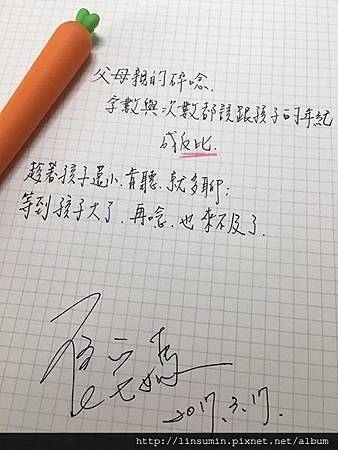 父母親的碎唸、
字數與次數都該跟孩子的年紀
成反比.
趁著孩子還小、肯聽、就多聊；
等到孩子大了、再唸、也來不及了.
2017.3.17.
http://linsumin.pixnet.net/album